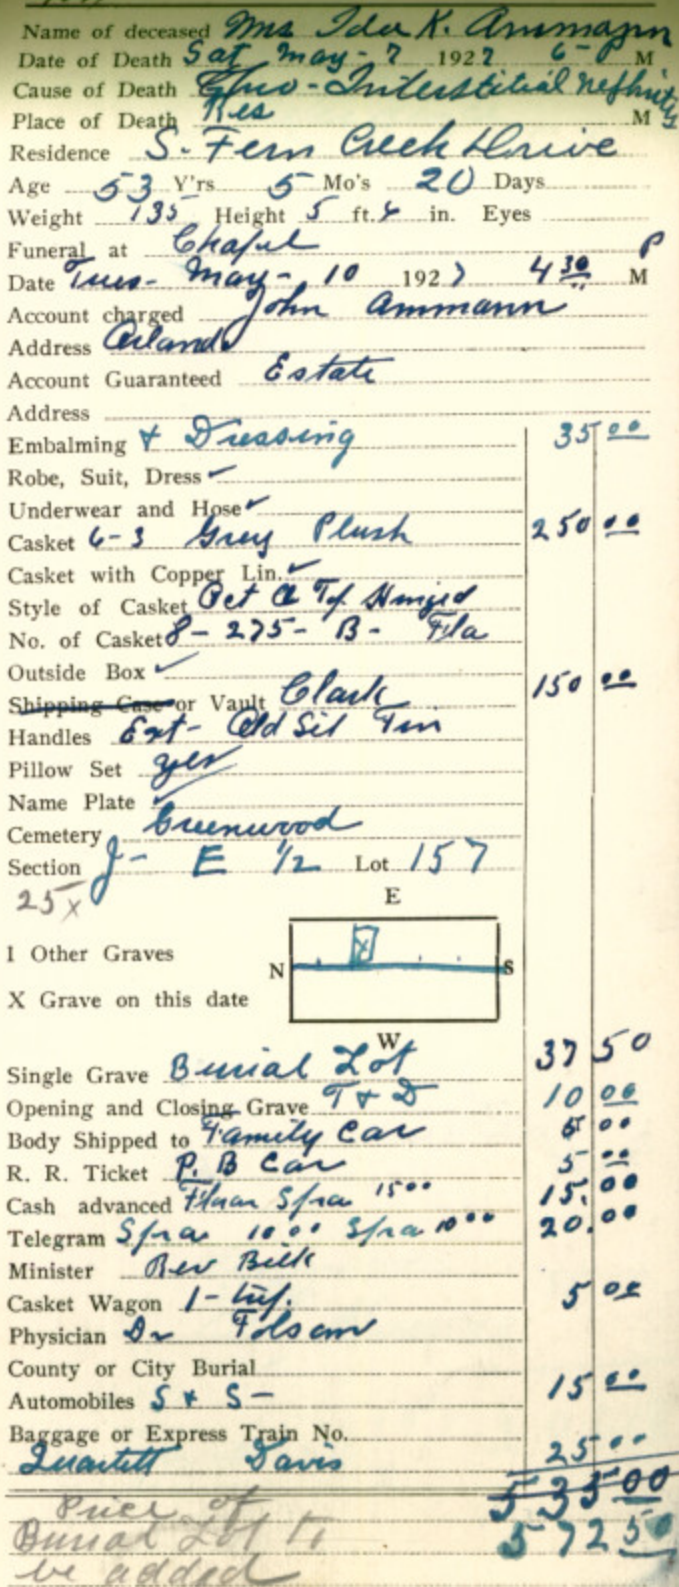 Name of deceased Mrs Ida K. Ammann
Date of Death Sat May - 7 1927 6 - P M
Cause of Death - Interstitial Nephritis
Place of Death Res M
Residence S. Fern Creek Drive
Age 53 Y'rs 5 Mo's 20 Days
Weight 135 Height 5 ft. 4 in. Eyes
Funeral at Chapel
Date Tues - May - 10 1927 4 30 P M
Account charged John Ammann
Address Orlando
Account Guaranteed Estate
Address
Embalming + Dressing 35 00
Robe, Suit, Dress ✓
Underwear and Hose ✓
Casket 6-3 Grey Plush 250 00
Casket with Copper Lin. ✓
Style of Casket Oct Hinged
No. of Casket 8 - 275 - B - Fla
Outside Box ✓
Shipping Case or Vault Clark 150 00
Handles Ext - Old Sil
Pillow Set yes
Name Plate ✓
Cemetery Greenwood
Section J - E 1/2 Lot 157
25 x
E
I Other Graves
N X S
X Grave on this date
W
Single Grave Burial Lot 37 50
Opening and Closing Grave T + D 10 00
Body Shipped to Family Car 5 00
R. R. Ticket P. B Car 5 00
Cash advanced Spra 15 00 15.00
Telegram Spra 10 00 Spra 10 00 20.00
Minister Rev
Casket Wagon 1 - 5 00
Physician Dr Folsom
County or City Burial
Automobiles S + S - 15 00
Baggage or Express Train No.
Quartett Davis 25 00
535 00
Price of 572 50
Burial Lot to
be added